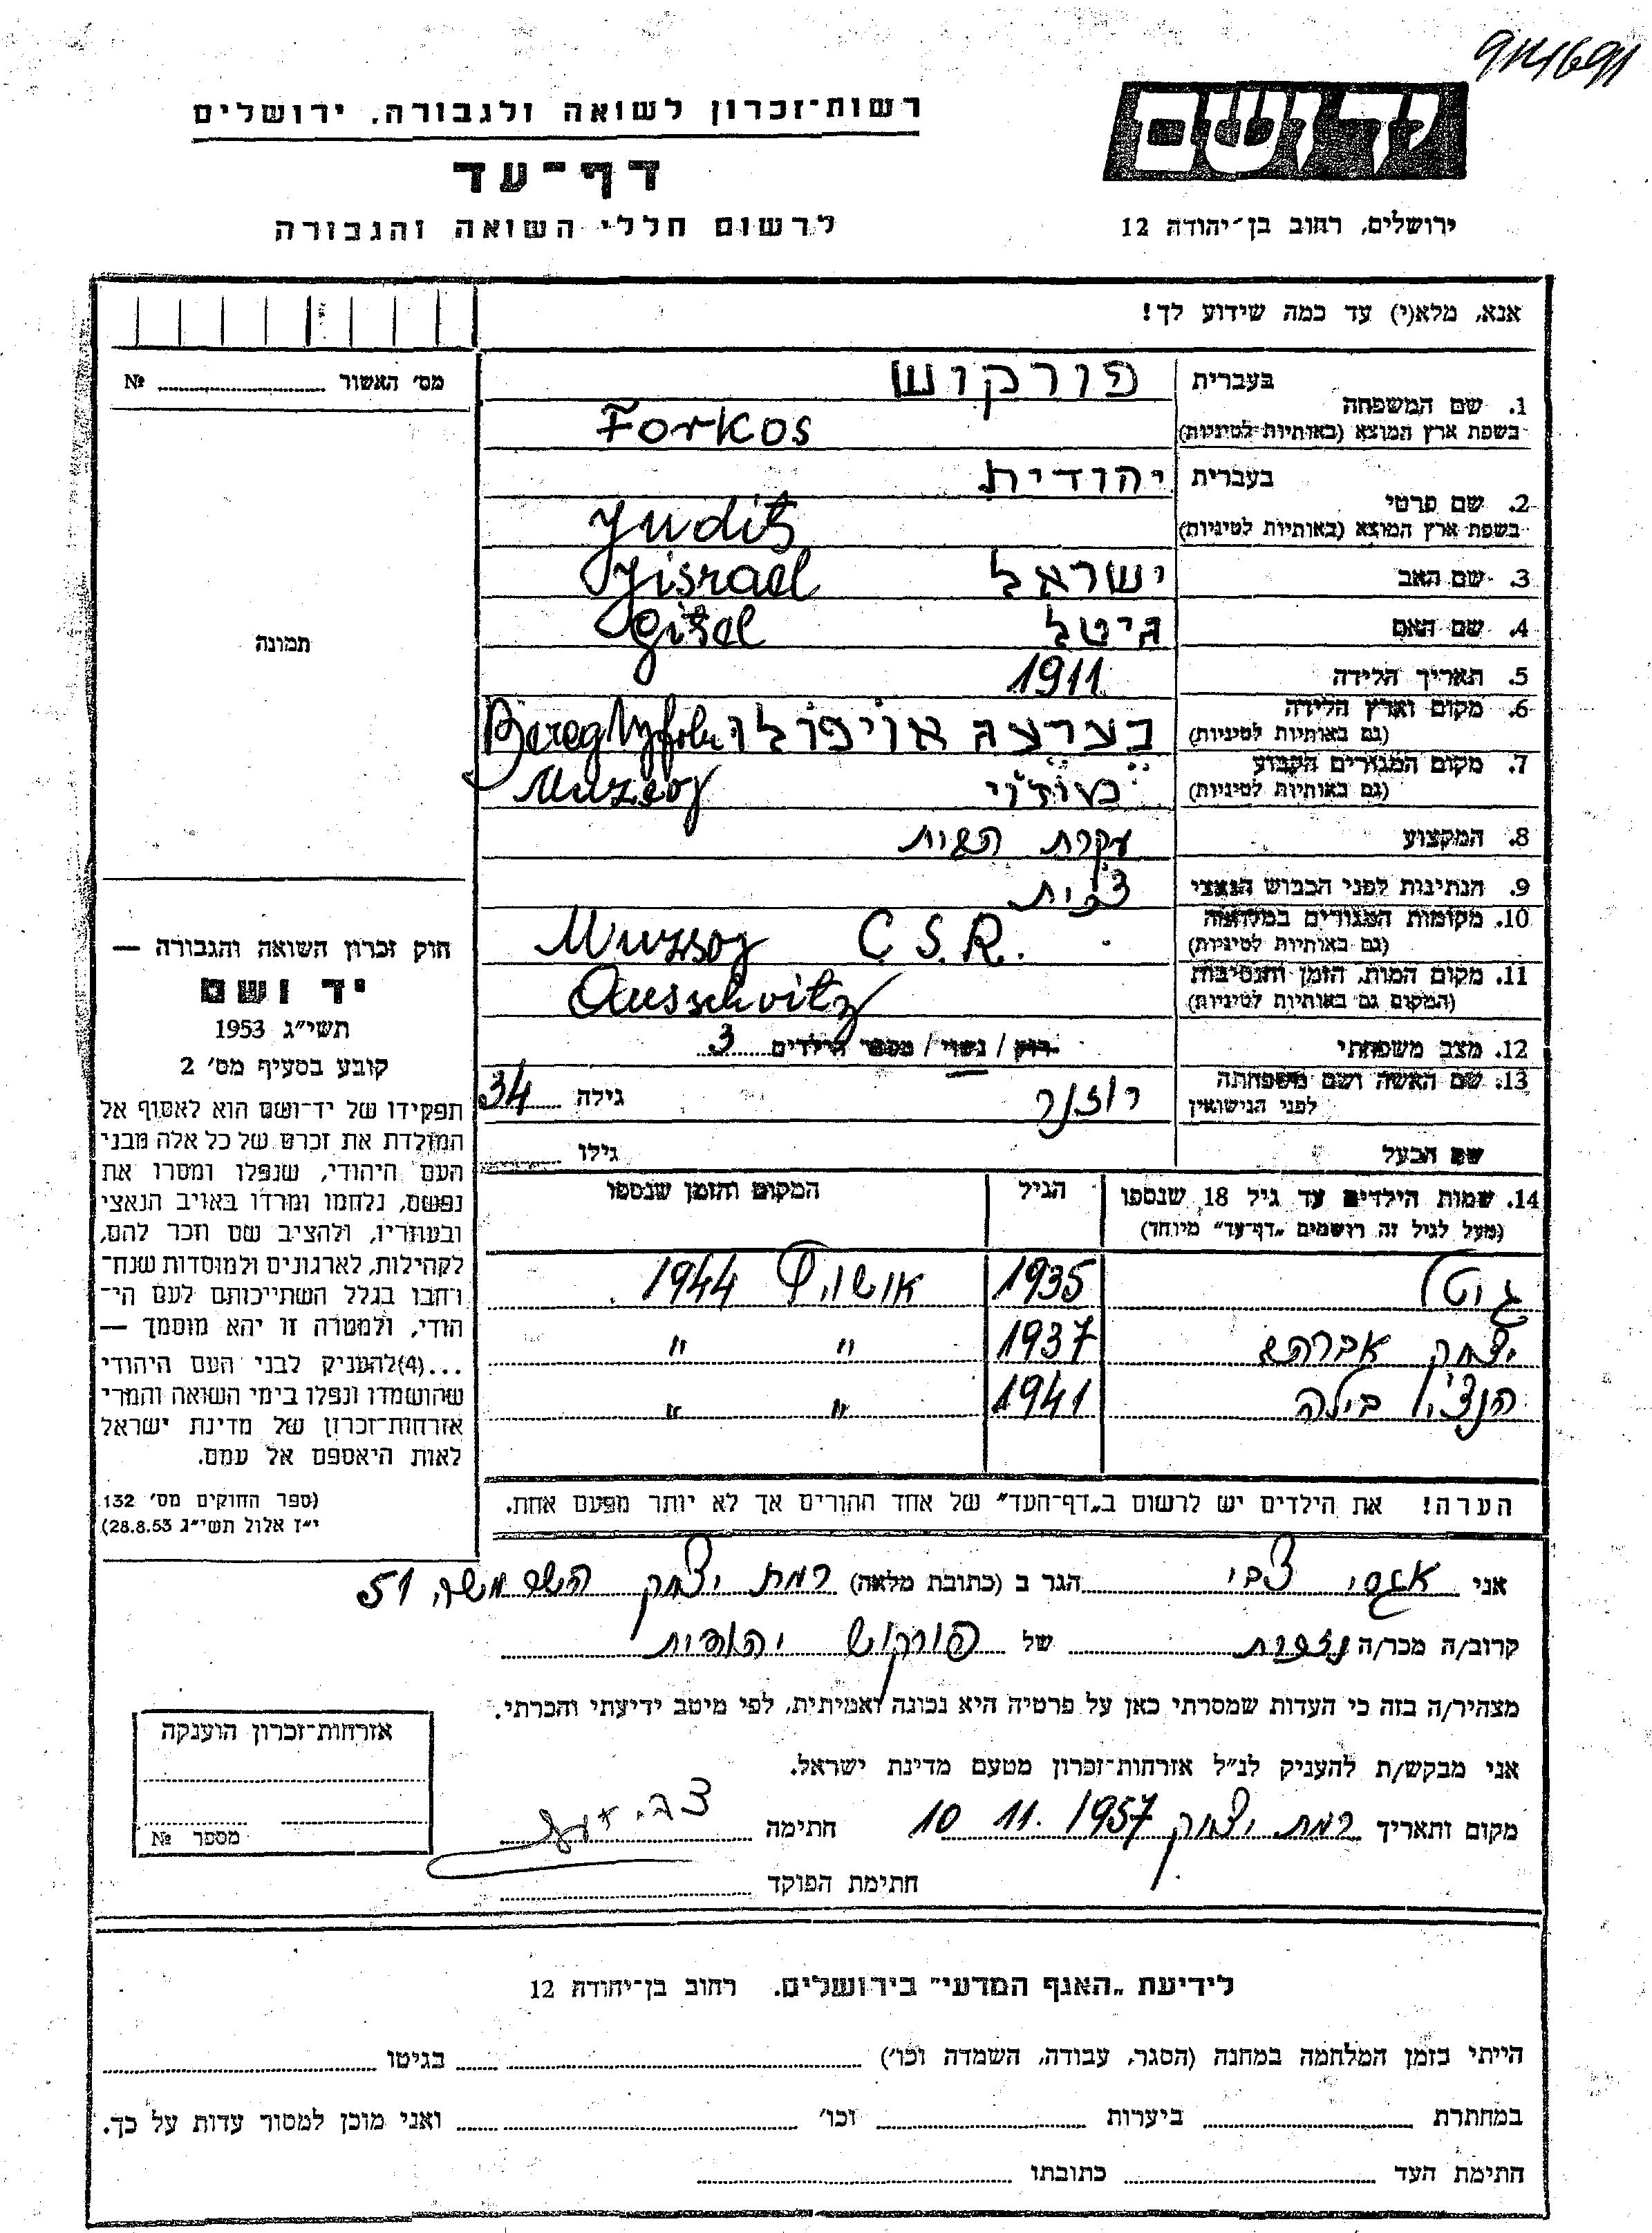 רשות־זכרון לשואה ולגבורה, ירושלים
דף־עד
לרשום חללי השואה והגבורה
יד ושם
ירושלים, רחוב בן־יהודה 12
אנא, מלא(י) עד כמה שידוע לך!
מס' האשור № 
תמונה
חוק זכרון השואה והגבורה —
יד ושם
תשי״ג 1953
קובע בסעיף מס' 2
תפקידו של יד-ושם הוא לאסוף אל
המולדת את זכרם של כל אלה מבני
העם היהודי, שנפלו ומסרו את
נפשם, נלחמו ומרדו באויב הנאצי
ובעוזריו, ולהציב שם וזכר להם,
לקהילות, לארגונים ולמוסדות שנח־
רבו בגלל השתייכותם לעם הי־
הודי, ולמטרה זו יהא מוסמך —
...(4)להעניק לבני העם היהודי
שהושמדו ונפלו בימי השואה והמרי
אזרחות־זכרון של מדינת ישראל
לאות היאספם אל עמם.
(ספר החוקים מס' 132
י״ז אלול תשי״ג 28.8.53)
1. שם המשפחה בעברית פורקוש
בשפת ארץ המוצא (באותיות לטיניות) Forkos
2. שם פרטי בעברית יהודית
בשפת ארץ המוצא (באותיות לטיניות) Judit
3. שם האב ישראל Jisrael
4. שם האם גיטל Gitel
5. תאריך הלידה 1911
6. מקום וארץ הלידה
(גם באותיות לטיניות) Bereg
7. מקום המגורים הקבוע
(גם באותיות לטיניות)
8. המקצוע עקרת הבית
9. הנתינות לפני הכבוש הנאצי צ'כית
10. מקומות המגורים במלחמה
(גם באותיות לטיניות) C.S.R.
11. מקום המות, הזמן והנסיבות
(המקום גם באותיות לטיניות) Ausschvitz
12. מצב משפחתי רווק / נשוי / מספר הילדים 3
13. שם האשה ושם משפחתה
לפני הנישואין רוזנר גילה 34
שם הבעל גילו
14. שמות הילדים עד גיל 18 שנספו הגיל המקום והזמן שנספו
(מעל לגיל זה רושמים „דף־עד״ מיוחד)
גיטל 1935 אושויץ 1944
יצחק אברהם 1937 " "
בילה 1941 " "
הערה! את הילדים יש לרשום ב„דף־העד״ של אחד ההורים אך לא יותר מפעם אחת.
אני צבי הגר ב (כתובת מלאה) רמת יצחק משה 51
קרוב/ה מכר/ה של פורקוש יהודית
מצהיר/ה בזה כי העדות שמסרתי כאן על פרטיה היא נכונה ואמיתית, לפי מיטב ידיעתי והכרתי.
אני מבקש/ת להעניק לנ״ל אזרחות־זכרון מטעם מדינת ישראל.
מקום ותאריך רמת יצחק 10 11. 1957 חתימה
חתימת הפוקד
אזרחות־זכרון הוענקה
מספר №
לידיעת „האגף המדעי״ בירושלים. רחוב בן־יהודה 12
הייתי בזמן המלחמה במחנה (הסגר, עבודה, השמדה וכו') בגיטו
במחתרת ביערות וכו' ואני מוכן למסור עדות על כך.
חתימת העד כתובתו